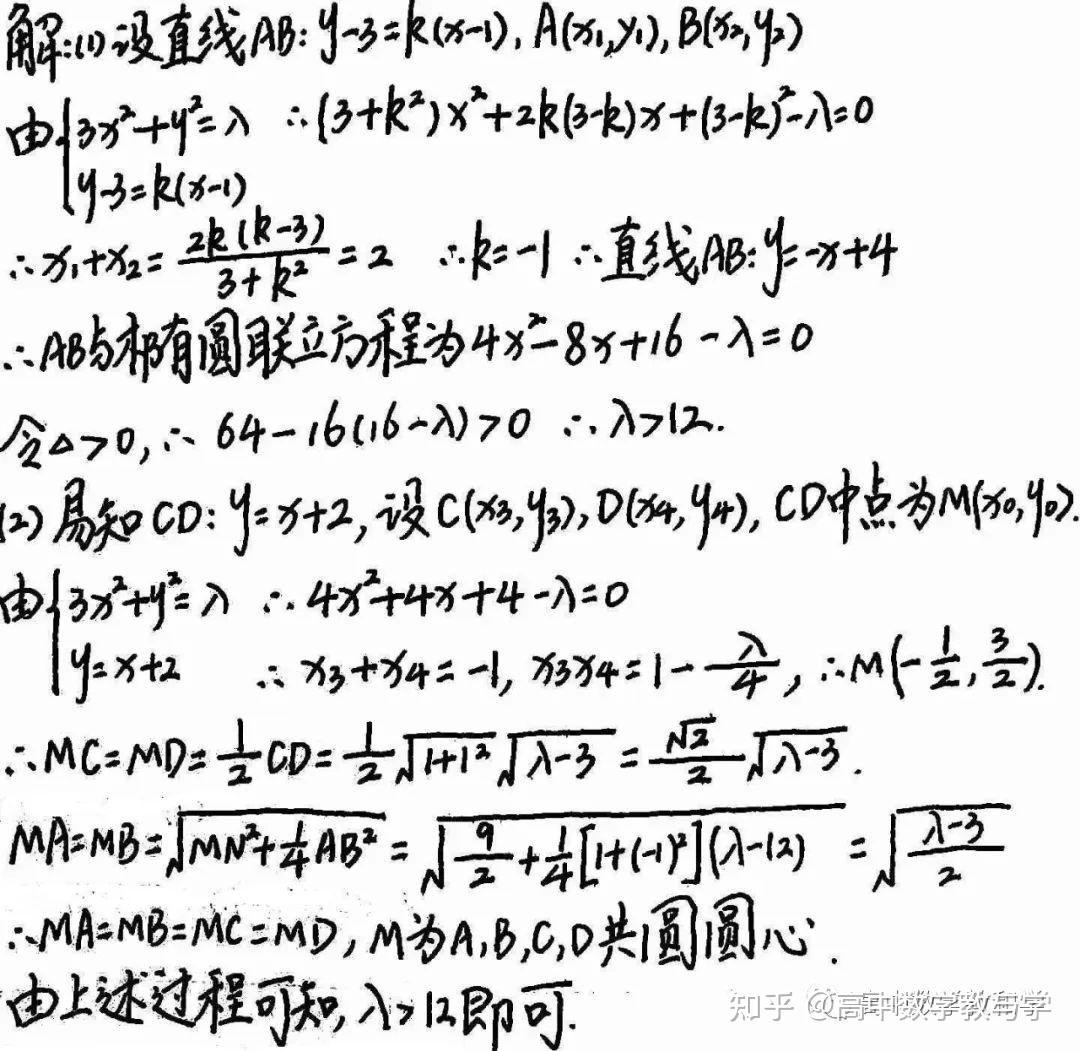 解:(1)设直线AB: y-3=k(x-1), A(x₁,y₁), B(x₂,y₂)
由{3x²+y²=λ ∴(3+k²)x²+2k(3-k)x+(3-k)²-λ=0
y-3=k(x-1)
∴x₁+x₂=2k(k-3)/(3+k²)=2 ∴k=-1 ∴直线AB: y=-x+4
∴AB与椭圆联立方程为4x²-8x+16-λ=0
令△>0,∴64-16(16-λ)>0 ∴λ>12.
(2)易知CD: y=x+2,设C(x₃,y₃),D(x₄,y₄), CD中点为M(x₀,y₀).
由{3x²+y²=λ ∴4x²+4x+4-λ=0
y=x+2 ∴x₃+x₄=-1, x₃x₄=1-λ/4, ∴M(-1/2,3/2).
∴MC=MD=1/2CD=1/2√(1+1²)√(λ-3)=√2/2√(λ-3).
MA=MB=√(MN²+1/4AB²)=√(9/2+1/4[1+(-1)²](λ-12))=√((λ-3)/2)
∴MA=MB=MC=MD, M为A,B,C,D共圆圆心.
由上述过程可知,λ>12即可.
知乎 @高中数学教与学